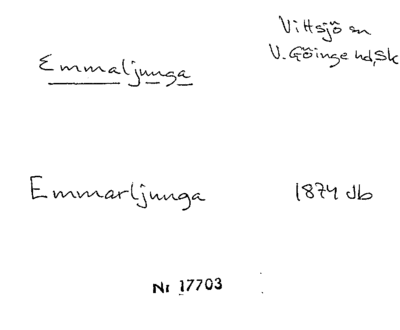 Vittsjö sn
Emmaljunga
V. Göinge hd, Sk
Emmarljunga 1874 Jb
Nr 17703